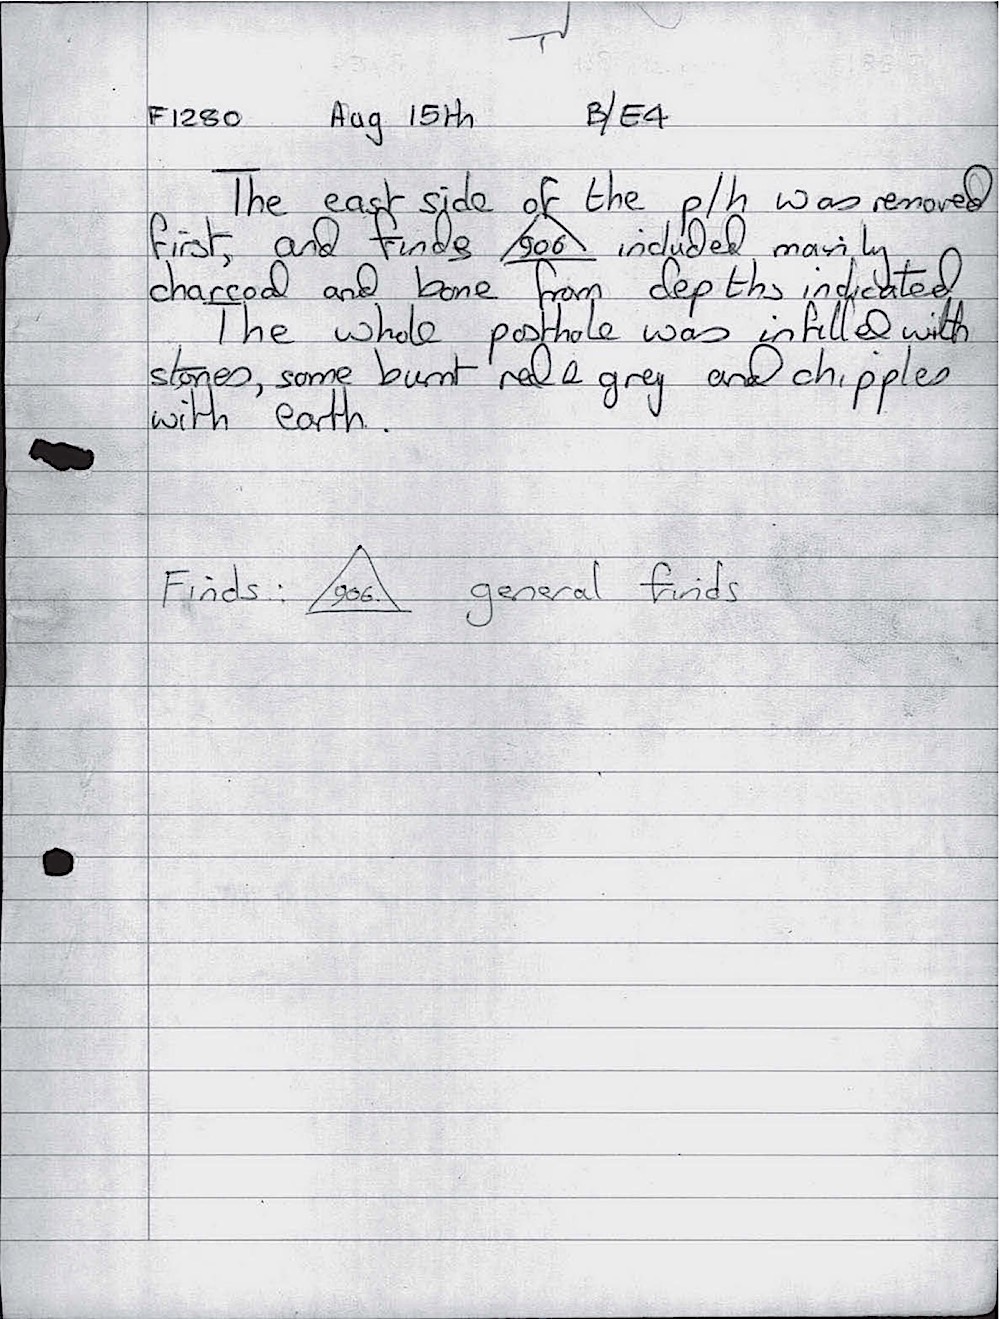 F1280 Aug 15th B/E4
The east side of the p/h was removed
first, and finds 906 included mainly
charcoal and bone from depths indicated
The whole posthole was infilled with
stones, some burnt red & grey and chipples
with earth.
Finds: 906. general finds